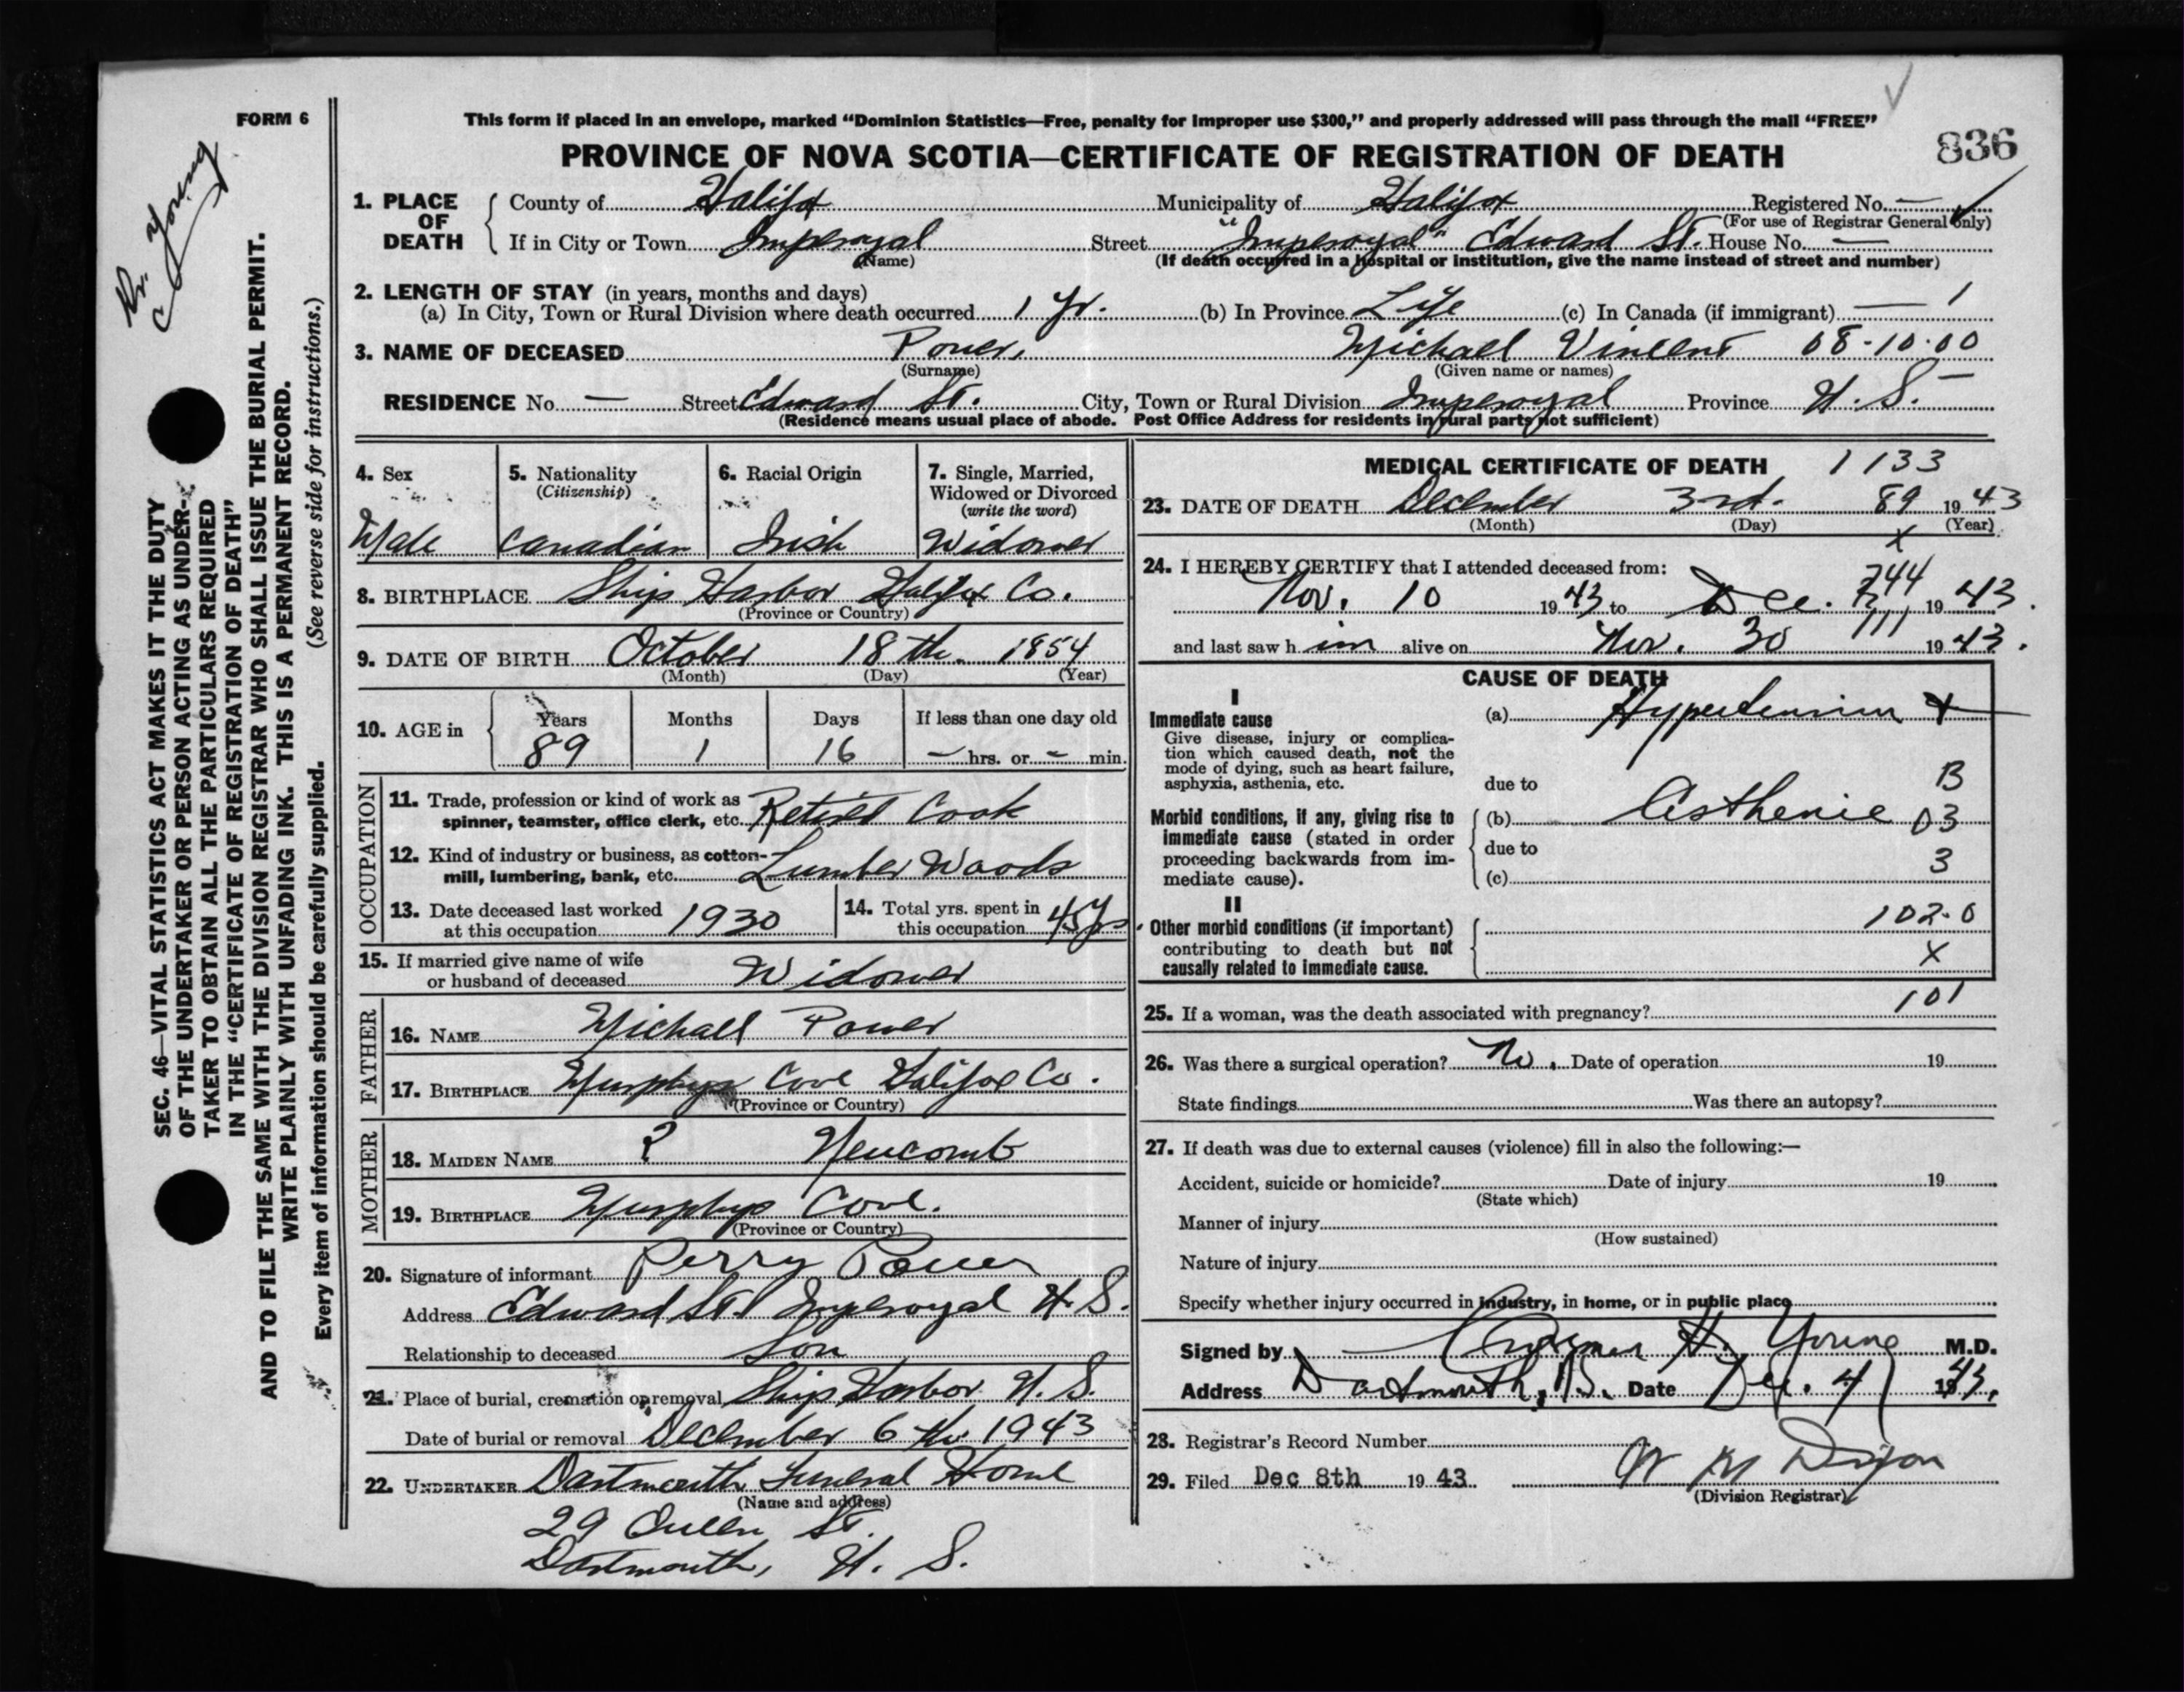 FORM 6
Dr. Young
This form if placed in an envelope, marked “Dominion Statistics—Free, penalty for improper use $300,” and properly addressed will pass through the mail “FREE”
PROVINCE OF NOVA SCOTIA—CERTIFICATE OF REGISTRATION OF DEATH
836
1. PLACE OF DEATH County of Halifax Municipality of Halifax Registered No. —
(For use of Registrar General Only)
If in City or Town Imperoyal Street "Imperoyal" Edward St. House No. —
(Name) (If death occurred in a hospital or institution, give the name instead of street and number)
2. LENGTH OF STAY (in years, months and days)
(a) In City, Town or Rural Division where death occurred 1 yr. (b) In Province Life (c) In Canada (if immigrant) — 1
3. NAME OF DECEASED Power, Michael Vincent 08-10-00
(Surname) (Given name or names)
RESIDENCE No. — Street Edward St. City, Town or Rural Division Imperoyal Province N. S. —
(Residence means usual place of abode. Post Office Address for residents in rural parts not sufficient)
4. Sex 5. Nationality 6. Racial Origin 7. Single, Married,
(Citizenship) Widowed or Divorced
(write the word)
Male Canadian Irish Widower
8. BIRTHPLACE Ship Harbor Halifax Co.
(Province or Country)
9. DATE OF BIRTH October 18th. 1854
(Month) (Day) (Year)
10. AGE in Years Months Days If less than one day old
89 1 16 — hrs. or — min.
OCCUPATION
11. Trade, profession or kind of work as
spinner, teamster, office clerk, etc. Retired Cook
12. Kind of industry or business, as cotton-
mill, lumbering, bank, etc. Lumber Woods
13. Date deceased last worked
at this occupation 1930
14. Total yrs. spent in
this occupation 45 yrs.
15. If married give name of wife
or husband of deceased Widower
FATHER
16. NAME Michael Power
17. BIRTHPLACE Murphys Cove Halifax Co.
(Province or Country)
MOTHER
18. MAIDEN NAME ? Newcomb
19. BIRTHPLACE Murphys Cove.
(Province or Country)
20. Signature of informant Perry Power
Address Edward St. Imperoyal N. S.
Relationship to deceased Son
21. Place of burial, cremation or removal Ship Harbor N. S.
Date of burial or removal December 6th. 1943
22. UNDERTAKER Dartmouth Funeral Home
(Name and address)
29 Queen St.
Dartmouth, N. S.
MEDICAL CERTIFICATE OF DEATH 1133
23. DATE OF DEATH December 3rd. 89 1943
(Month) (Day) (Year)
x
24. I HEREBY CERTIFY that I attended deceased from:
744
Nov. 10 1943 to Dec. 1943.
111
and last saw him alive on Nov. 30 1943.
CAUSE OF DEATH
I
Immediate cause (a) Hypertension
Give disease, injury or complica-
tion which caused death, not the
mode of dying, such as heart failure,
asphyxia, asthenia, etc. due to B
Morbid conditions, if any, giving rise to (b) Asthenia 03
immediate cause (stated in order
due to
proceeding backwards from im- 3
mediate cause). (c)
II
Other morbid conditions (if important) 102-0
contributing to death but not
causally related to immediate cause. X
25. If a woman, was the death associated with pregnancy? 101
26. Was there a surgical operation? No. Date of operation 19
State findings Was there an autopsy?
27. If death was due to external causes (violence) fill in also the following:—
Accident, suicide or homicide? Date of injury 19
(State which)
Manner of injury
(How sustained)
Nature of injury
Specify whether injury occurred in industry, in home, or in public place
Signed by H. Young M.D.
Address Dartmouth, N.S. Date Dec. 4 1943.
28. Registrar's Record Number
29. Filed Dec 8th 1943. Dixon
(Division Registrar)
SEC. 46—VITAL STATISTICS ACT MAKES IT THE DUTY
OF THE UNDERTAKER OR PERSON ACTING AS UNDER-
TAKER TO OBTAIN ALL THE PARTICULARS REQUIRED
IN THE “CERTIFICATE OF REGISTRATION OF DEATH”
AND TO FILE THE SAME WITH THE DIVISION REGISTRAR WHO SHALL ISSUE THE BURIAL PERMIT.
WRITE PLAINLY WITH UNFADING INK. THIS IS A PERMANENT RECORD.
Every item of information should be carefully supplied. (See reverse side for instructions.)